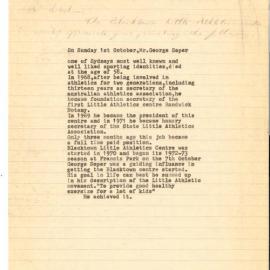 The Blacktown Little Athletics
On Sunday 1st October,Mr.George Soper
one of Sydneys most well known and
well liked sporting identities,died
at the age of 58.
In 1968,after being involved in
athletics for two generations,including
thirteen years as secretary of the
australian athletics association,he
became foundation secretary of the
first Little Athletics centre Randwick
Botany.
In 1969 he became the president of this
centre and in 1971 he became honary
secretary of the State Little Athletics
Association.
Only three months ago this job became
a full time paid position.
Blacktown Little Athletics Centre was
started in 1970 and began its 1972-73
season at Francis Park on the 7th October
George Soper was a guiding influence in
getting the Blacktown centre started.
His goal in life can best be summed up
in his description of the Little Athletic
movement."To provide good healthy
exercise for a lot of kids"
He achieved it.